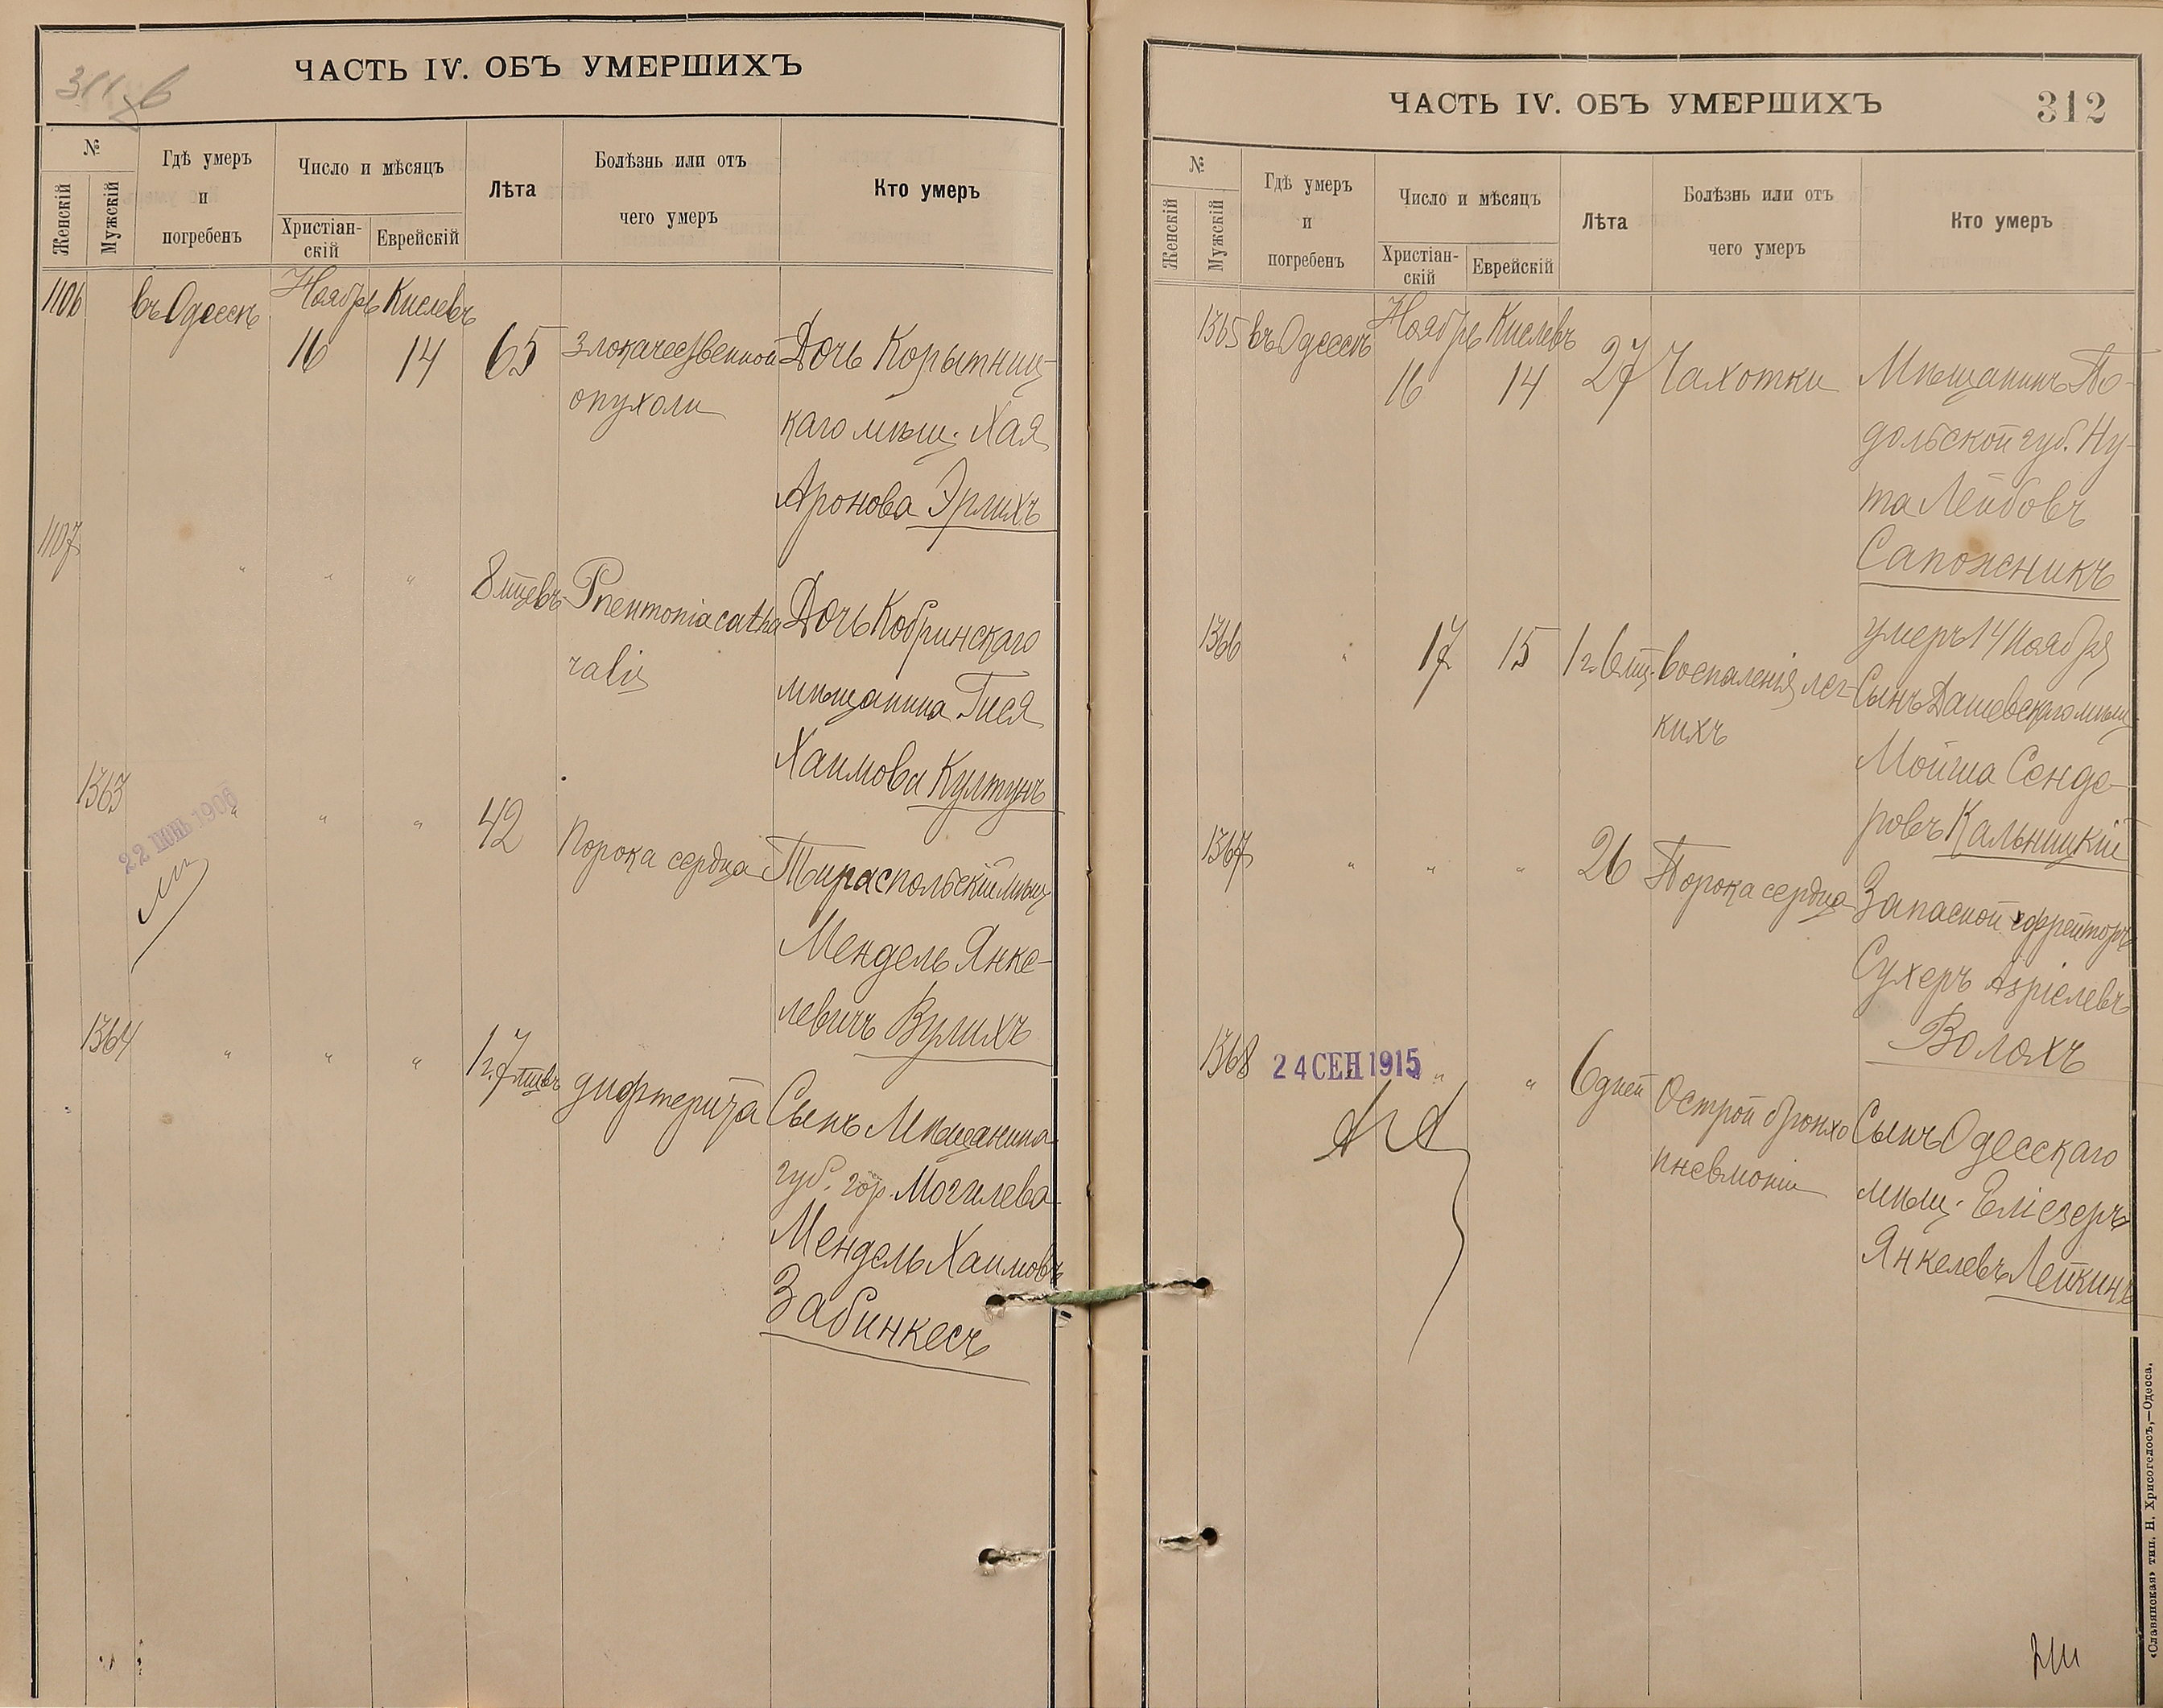 311 б
ЧАСТЬ IV. ОБЪ УМЕРШИХЪ
№
Женскій
Мужскій
Гдѣ умеръ
и
погребенъ
Число и мѣсяцъ
Христіан-
скій
Еврейскій
Лѣта
Болѣзнь или отъ
чего умеръ
Кто умеръ
1106
въ Одессѣ
Ноябрь
16
Кислевъ
14
65
Злокачественной
опухоли
Дочь Корытниц-
каго мѣщ. Хая
Аронова Эрлихъ
1107
" " "
8 мцевъ
Pneumonia catha
ralis
Дочь Кобринскаго
мѣщанина Гися
Хаимова Култунъ
1363
22 ІЮН 1906
" " "
42
Порока сердца
Тираспольскій мѣщ
Мендель Янке-
левичъ Вулихъ
1364
" " "
1 г. 7 мцевъ
дифтерита
Сынъ Мѣщанина
губ. гор. Могилева
Мендель Хаимовъ
Забинкесъ
ЧАСТЬ IV. ОБЪ УМЕРШИХЪ
312
№
Женскій
Мужскій
Гдѣ умеръ
и
погребенъ
Число и мѣсяцъ
Христіан-
скій
Еврейскій
Лѣта
Болѣзнь или отъ
чего умеръ
Кто умеръ
1365
въ Одессѣ
Ноябрь
16
Кислевъ
14
27
Чахотки
Мѣщанинъ По-
дольской губ. Ну-
та Лейбовъ
Сапожникъ
умеръ 14 Ноября
1366
"
17
15
1 г. 6 мц.
воспаленія лег-
кихъ
Сынъ Дашевскаго мѣщ
Мойша Сенде-
ровъ Кальницкій
1367
" " "
26
Порока сердца
Запасной ефрейторъ
Сухеръ Азріелевъ
Волохъ
1368
24 СЕН 1915
" "
6 дней
Острой бронхо
пневмоніи
Сынъ Одесскаго
мѣщ. Еліезеръ
Янкелевъ Лейкинъ
«Славянская» тип. Н. Хрисогелосъ,—Одесса.